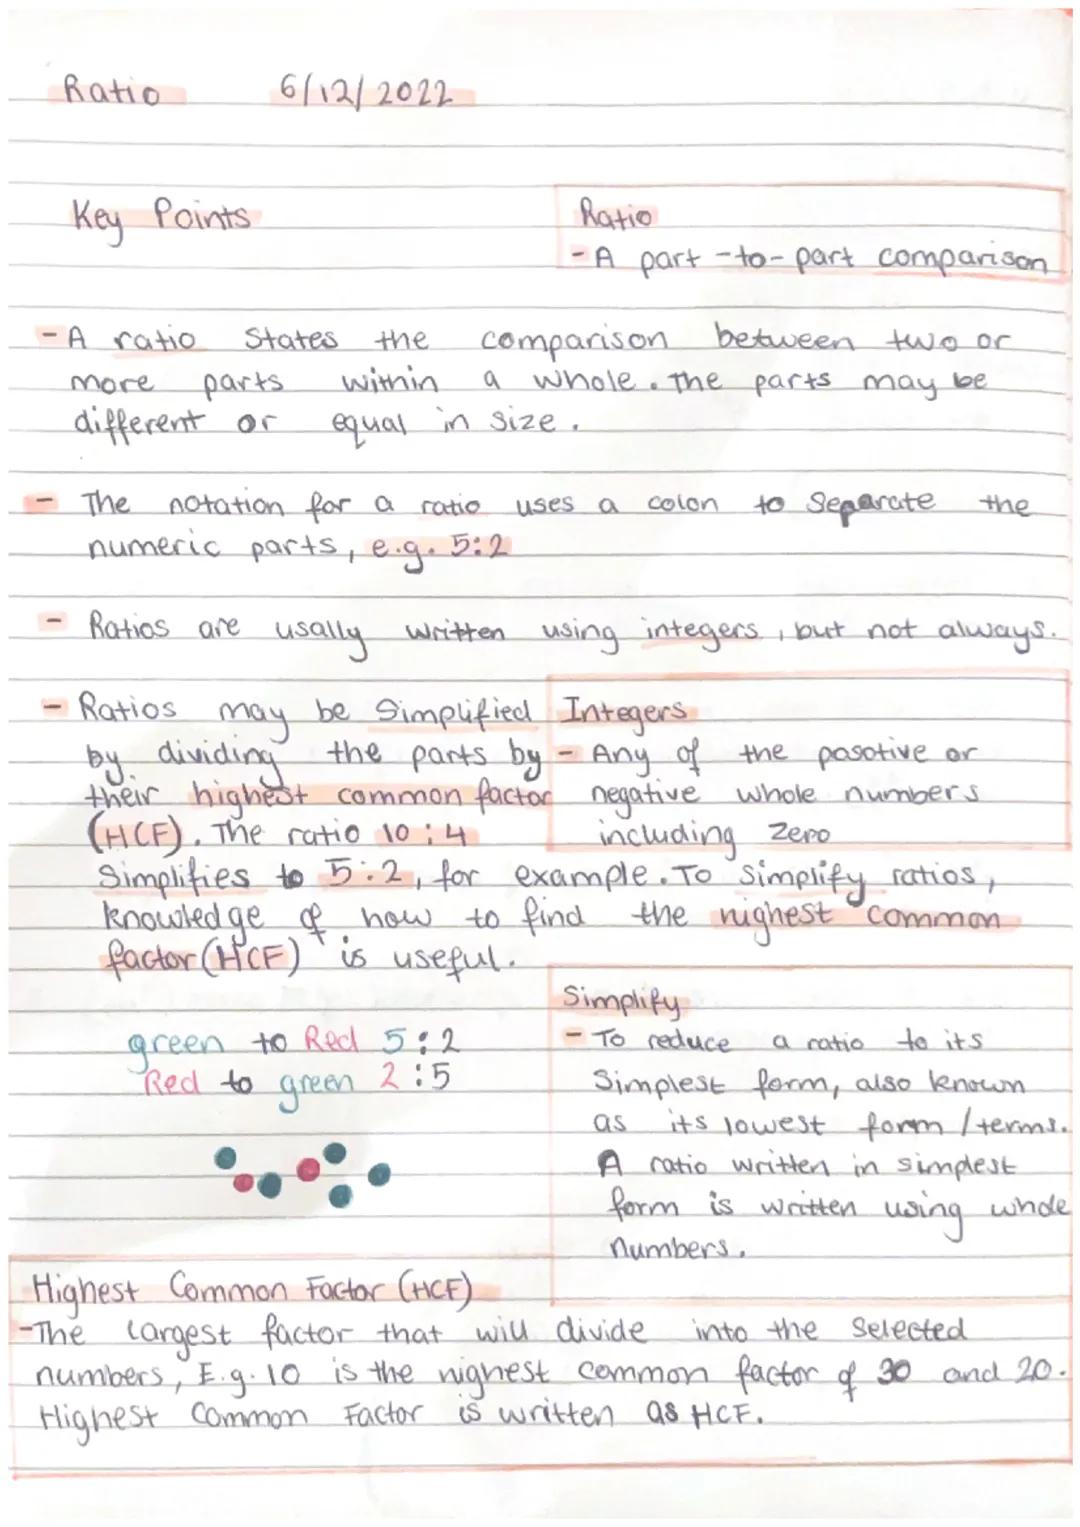 Ratio 6/12/2022
Key Points
Ratio
- A part-to-part comparison
- A ratio States the comparison between two or
more parts within a whole. The parts may be
different or equal in size.
- The notation for a ratio uses a colon to Separate the
numeric parts, e.g. 5:2
- Ratios are usally written using integers, but not always.
- Ratios may be Simplified
by dividing the parts by
their highest common factor
(HCF). The ratio 10:4
Simplifies to 5:2, for example. To simplify ratios,
knowledge of how to find the highest common
factor (HCF) is useful.
Integers
- Any of the posotive or
negative whole numbers
including Zero
green to Red 5:2
Red to green 2:5
Simplify
- To reduce a ratio to its
Simplest form, also known
as its lowest form / terms.
A ratio written in simplest
form is written using whole
numbers.
Highest Common Factor (HCF)
- The largest factor that will divide into the Selected
numbers, E.g. 10 is the highest common factor of 30 and 20.
Highest Common Factor is written as HCF.